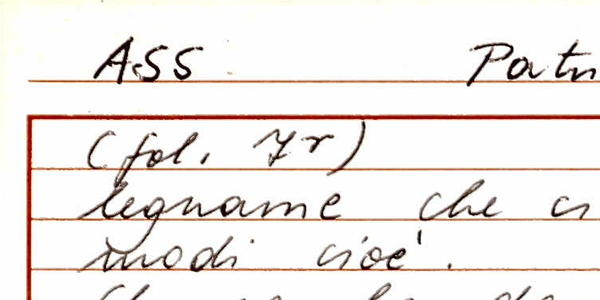 ASS
(fol. 7r)
legname che ci
modi cioè.